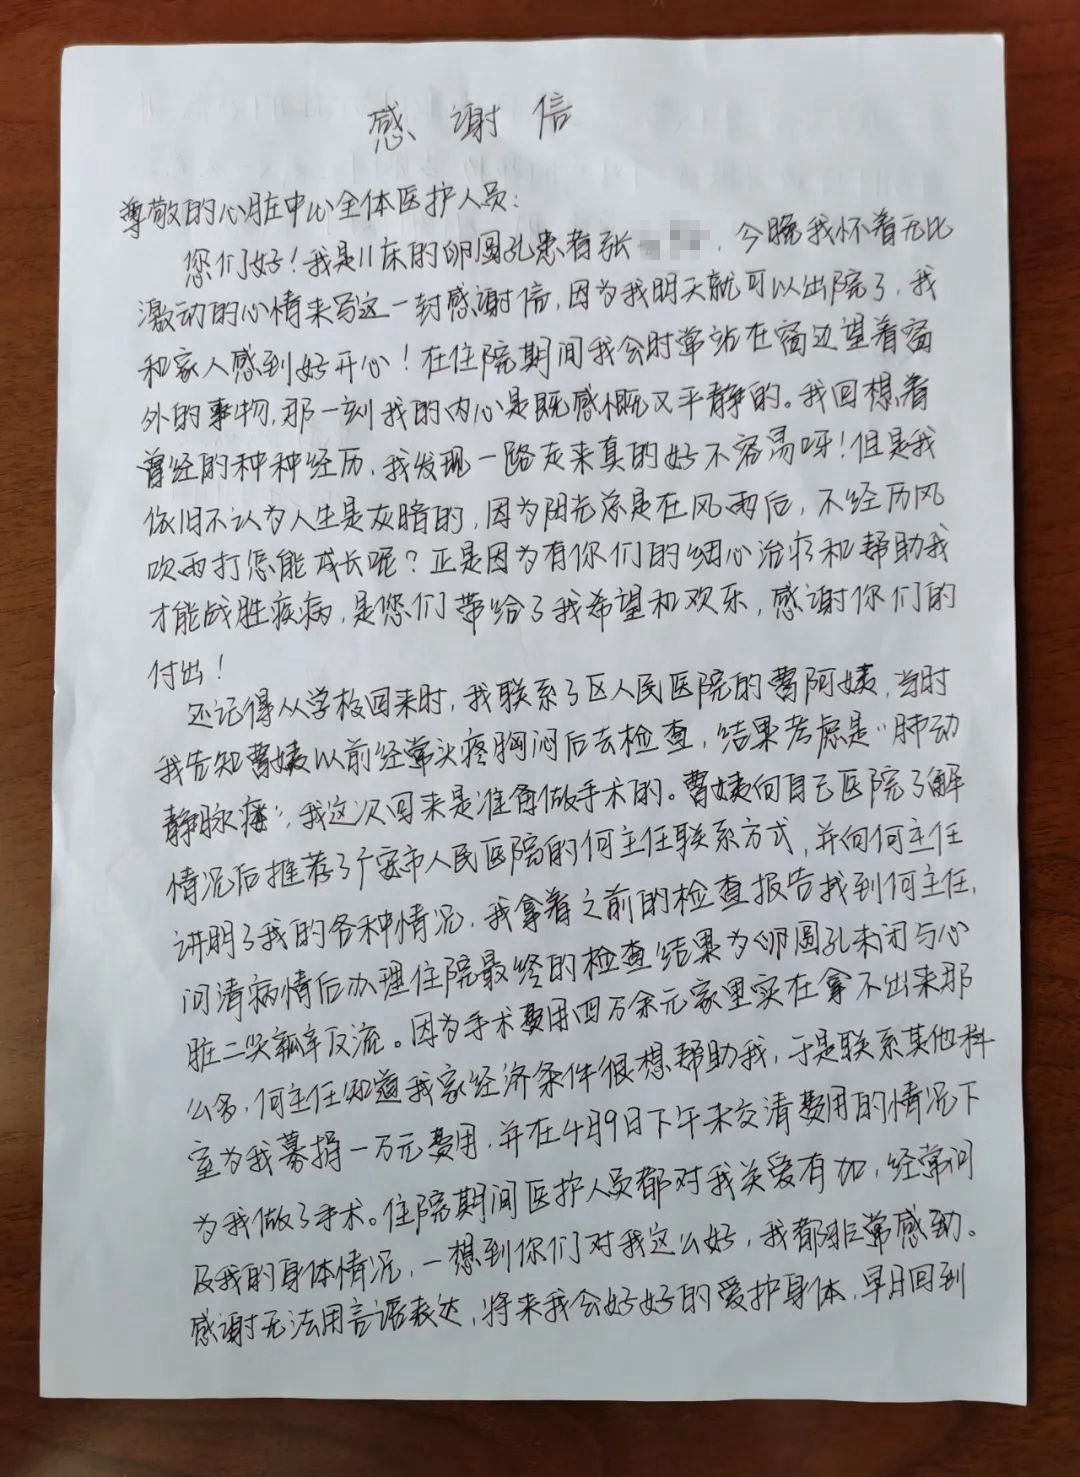 感谢信
尊敬的心脏中心全体医护人员：
您们好！我是11床的卵圆孔患者张，今晚我怀着无比
激动的心情来写这一封感谢信，因为我明天就可以出院了，我
和家人感到好开心！在住院期间我会时常站在窗边望着窗
外的事物，那一刻我的内心是既感概又平静的。我回想着
曾经的种种经历，我发现一路走来真的好不容易呀！但是我
依旧不认为人生是灰暗的，因为阳光总是在风雨后，不经历风
吹雨打怎能成长呢？正是因为有你们的细心治疗和帮助我
才能战胜疾病，是您们带给了我希望和欢乐，感谢你们的
付出！
还记得从学校回来时，我联系了区人民医院的曹阿姨，当时
我告知曹姨以前经常头疼胸闷后去检查，结果考虑是“肺动
静脉瘘”，我这次回来是准备做手术的。曹姨向自己医院了解
情况后推荐了广安市人民医院的何主任联系方式，并向何主任
讲明了我的各种情况，我拿着之前的检查报告找到何主任，
问清病情后办理住院最终的检查结果为卵圆孔未闭与心
脏二尖瓣反流。因为手术费用四万余元家里实在拿不出来那
么多，何主任知道我家经济条件很想帮助我，于是联系其他科
室为我募捐一万元费用，并在4月9日下午未交清费用的情况下
为我做了手术。住院期间医护人员都对我关爱有加，经常问
及我的身体情况，一想到你们对我这么好，我都非常感动。
感谢无法用言语表达，将来我会好好的爱护身体，早日回到